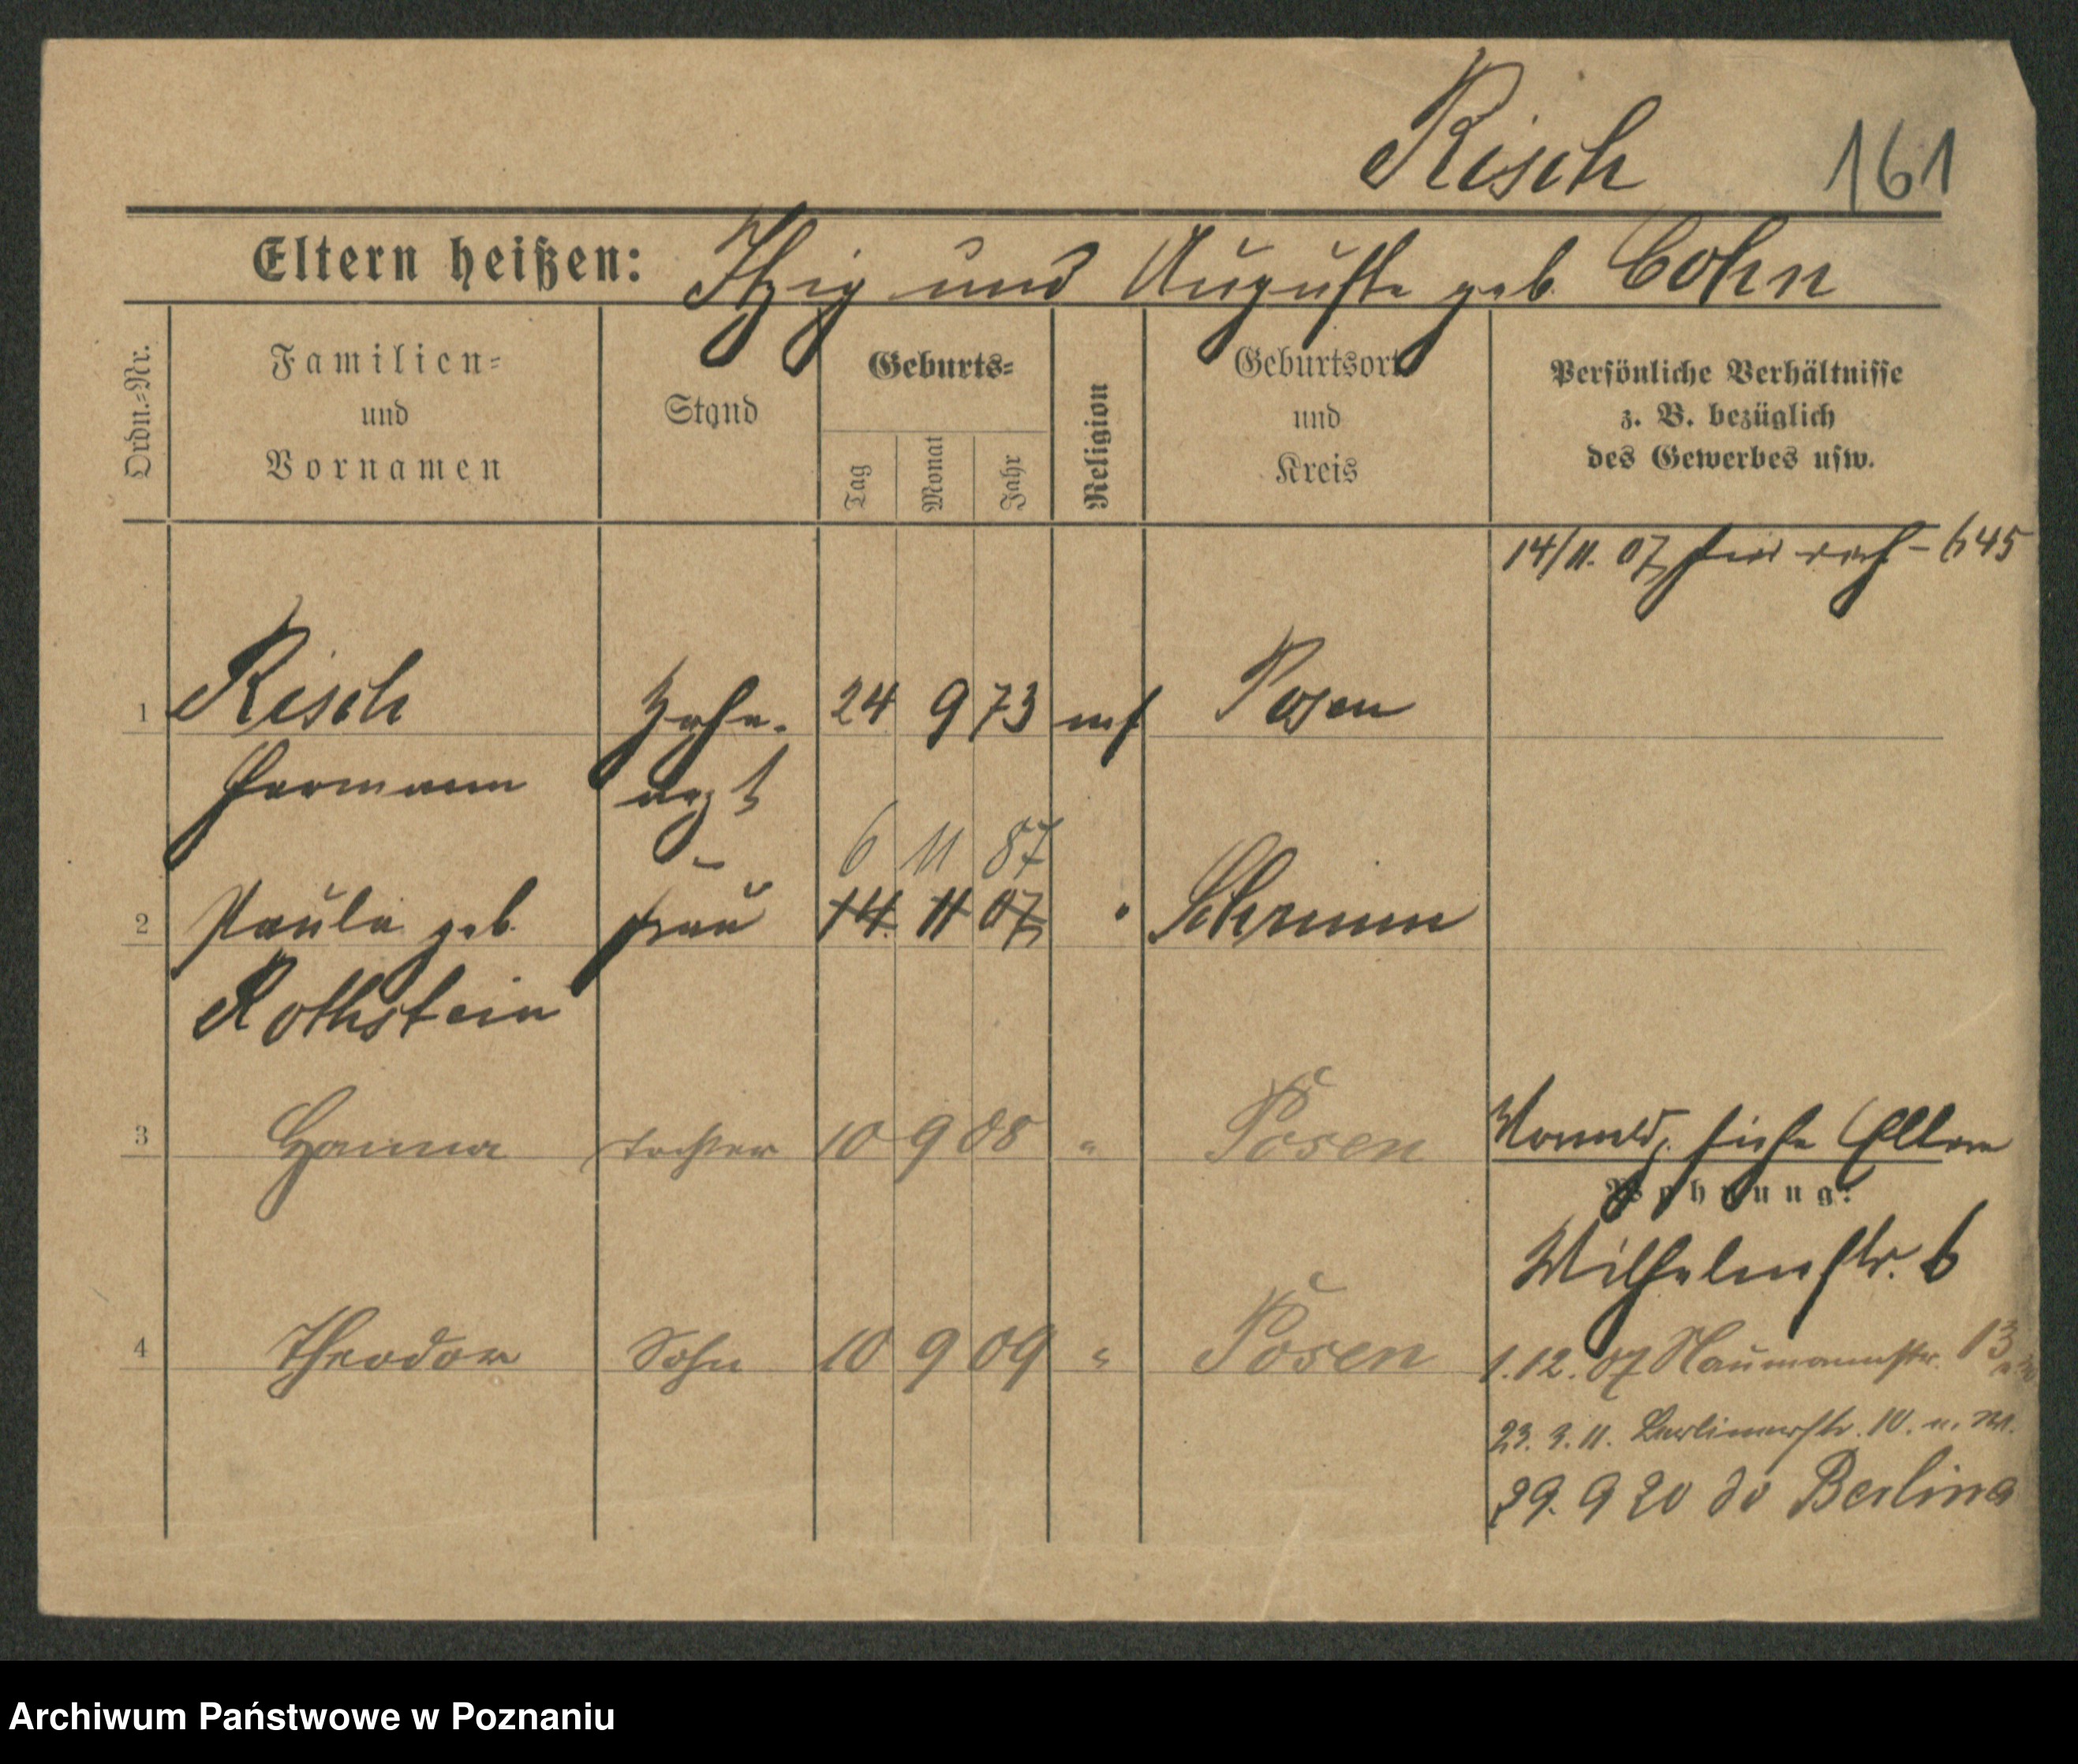 Risch 161
Eltern heißen: Itzig und Auguste geb. Cohn
Ordn.-Nr.
Familien-
und
Vornamen
Stand
Geburts-
Tag
Monat
Jahr
Religion
Geburtsort
und
Kreis
Persönliche Verhältnisse
z. B. bezüglich
des Gewerbes usw.
14/11. 07 645
1 Risch Zahn- 24 9 73 mos Posen
Hermann arzt
6 11 87
2 Paula geb. Frau 14. 11 07 " Schrimm
Rothstein
3 Hanna Tochter 10 9 08 " Posen siehe Eltern
Wohnung:
Wilhelmstr. 6
4 Theodor Sohn 10 9 09 " Posen 1.12.07 Naumannstr. 13
23.3.11. Berlinerstr. 10.
29.9 20 do Berlina
Archiwum Państwowe w Poznaniu